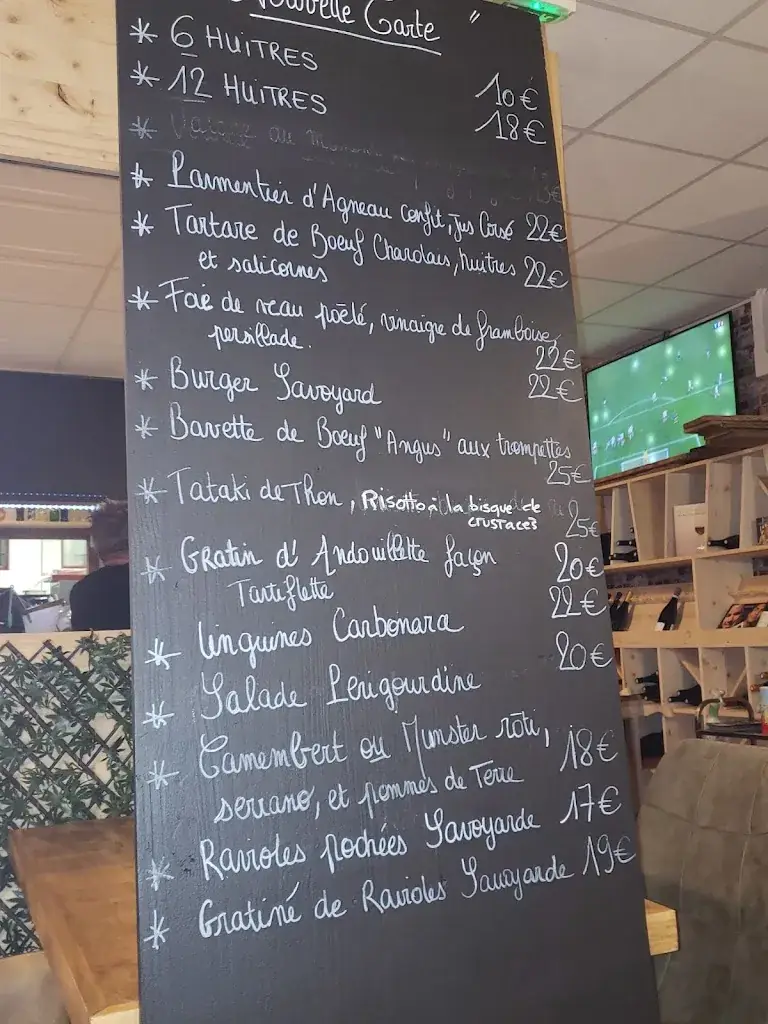 Nouvelle Carte "
* 6 HUITRES 10€
* 12 HUITRES 18€
* au
* Parmentier d'Agneau confit, jus Corsé 22€
* Tartare de Boeuf Charolais, huitres 22€
et salicornes
* Foie de veau poêlé, vinaigre de framboise,
persillade. 22€
* Burger Savoyard 22€
* Bavette de Boeuf "Angus" aux trompettes
25€
* Tataki de Thon, Risotto à la bisque de
crustacés 25€
* Gratin d'Andouillette façon 20€
Tartiflette
* linguines Carbonara 22€
* Salade Périgourdine 20€
* Camembert ou Munster rôti,
serrano, et pommes de Terre 18€
* Ravioles pochées Savoyarde 17€
* Gratiné de Ravioles Savoyarde 19€